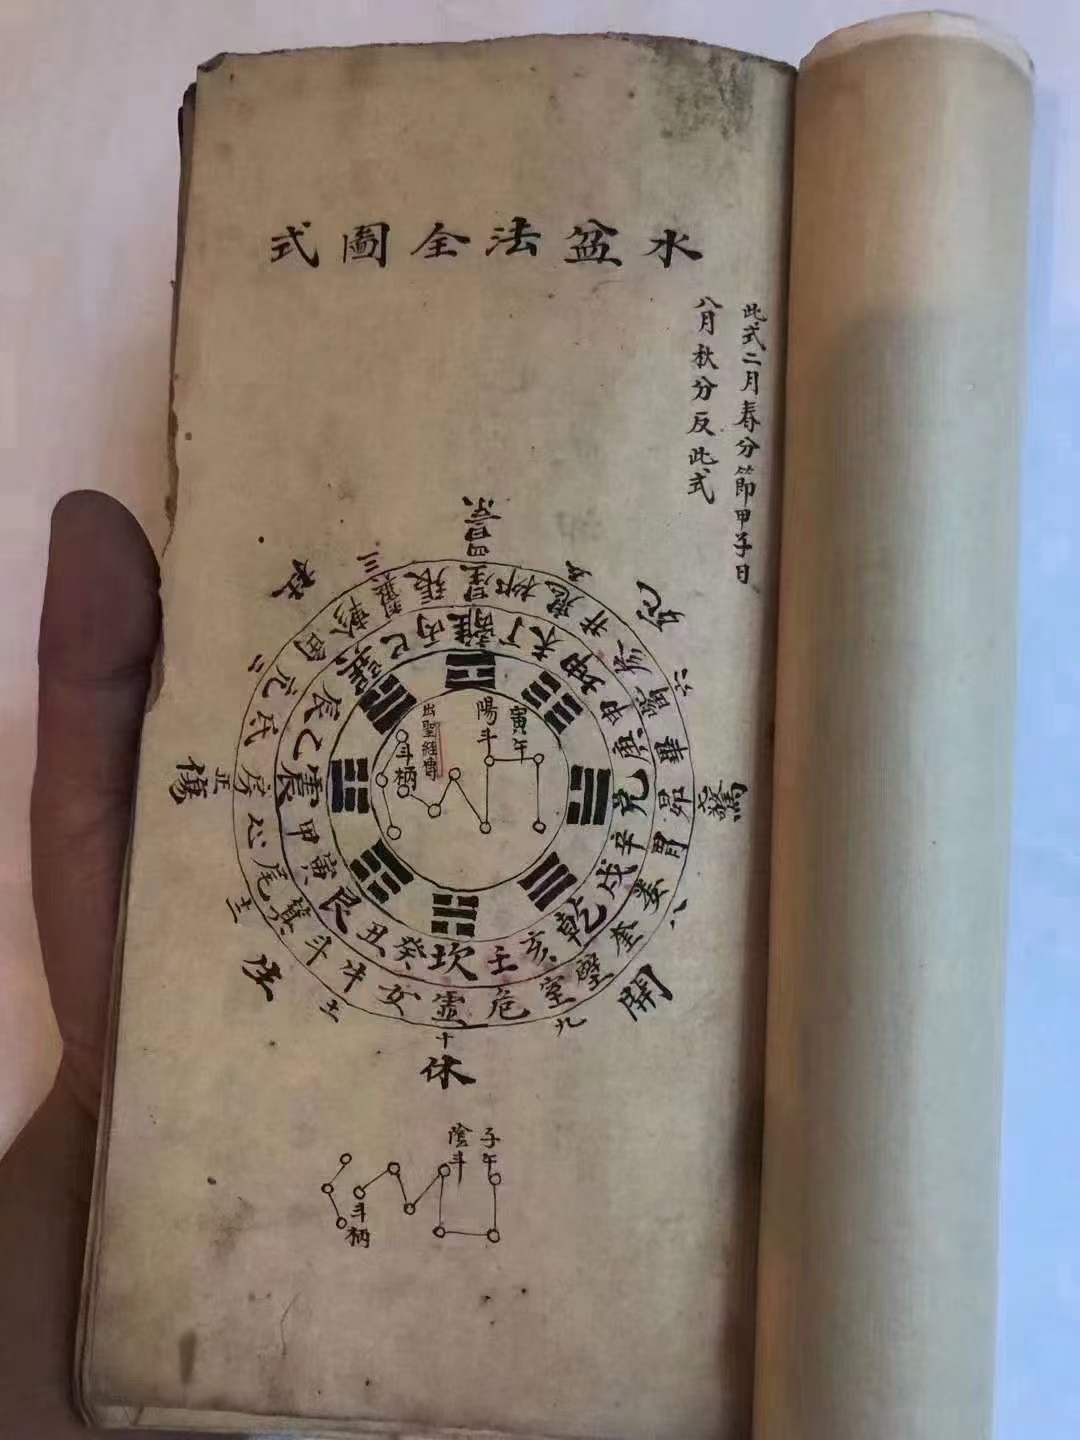 水盆法全圖式
此式二月春分節甲子日
八月秋分反此式
景
死
驚
開
休
生
傷
杜
四
五
六
七
八
九
十
十一
十二
正
二
三
星柳鬼井參觜畢昴胃婁奎壁室危虛女牛斗箕尾心房氐亢角軫翼張
離丁未坤申庚兌辛戌乾亥壬坎癸丑艮寅甲震乙辰巽巳丙
寅午
陽斗
出聖經
斗柄
子午
陰斗
斗柄